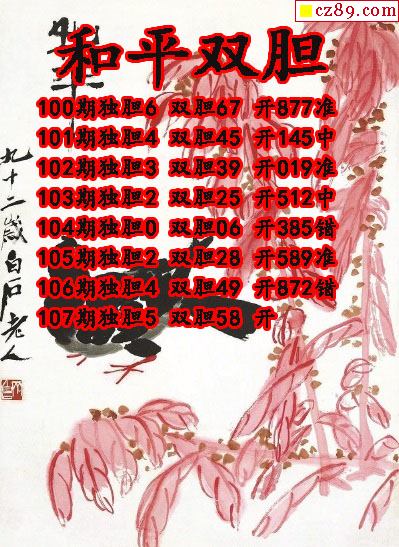 cz89.com
和平双胆
100期独胆6 双胆67 开877准
101期独胆4 双胆45 开145中
102期独胆3 双胆39 开019准
103期独胆2 双胆25 开512中
104期独胆0 双胆06 开385错
105期独胆2 双胆28 开589准
106期独胆4 双胆49 开872错
107期独胆5 双胆58 开
九十二岁白石老人